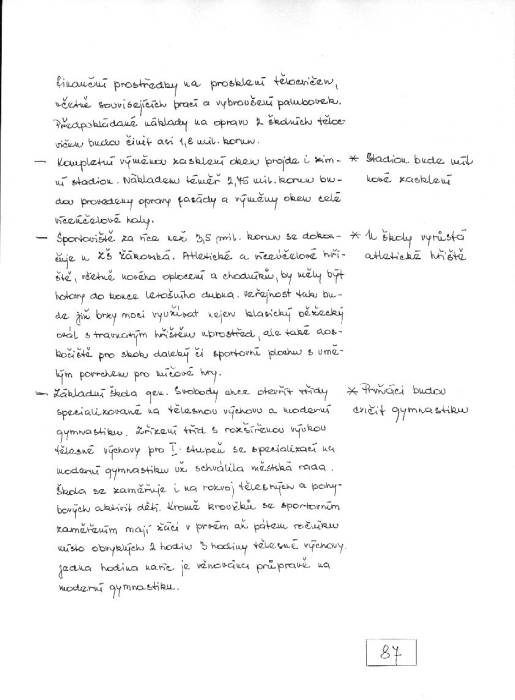 finanční prostředky na prosklení tělocvičen,
včetně souvisejících prací a vybroušení palubovek.
Předpokládané náklady na opravu 2 školních těloc-
vičen budou činit asi 1,8 mil. korun.
– Kompletní výměnou zasklení oken projde i zim-
ní stadion. Nákladem téměř 2,75 mil. korun bu-
dou provedeny opravy fasády a výměny oken celé
víceúčelové haly.
* Stadion bude mít
nové zasklení
– Sportoviště za více než 3,5 mil. korun se dokon-
čuje u ZŠ Žákovská. Atletické a víceúčelové hři-
ště, včetně nového oplocení a chodníků, by měly být
hotovy do konce letošního dubna. Veřejnost tak bu-
de již brzy moci využívat nejen klasický běžecký
ovál s travnatým hřištěm uprostřed, ale také dos-
kočiště pro skok daleký či sportovní plochu s umě-
lým povrchem pro míčové hry.
* U školy vyrůstá
atletické hřiště
– Základní škola gen. Svobody chce otevřít třídy
specializované na tělesnou výchovu a moderní
gymnastiku. Zřízení tříd s rozšířenou výukou
tělesné výchovy pro I. stupeň se specializací na
moderní gymnastiku už schválila městská rada.
Škola se zaměřuje i na rozvoj tělesných a pohy-
bových aktivit dětí. Kromě kroužků se sportovním
zaměřením mají žáci v prvém až pátém ročníku
místo obvyklých 2 hodin 3 hodiny tělesné výchovy.
Jedna hodina navíc je věnována přípravě na
moderní gymnastiku.
* Prvňáci budou
cvičit gymnastiku
87